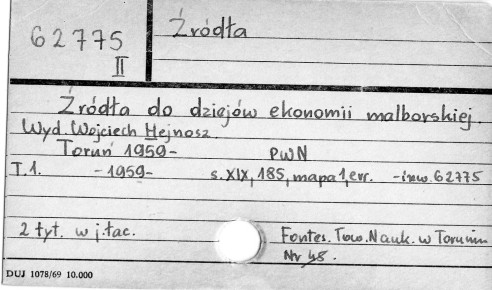 62775
II
Źródła
Źródła do dziejów ekonomii malborskiej.
Wyd. Wojciech Hejnosz.
Toruń 1959- PWN
T.1. -1959- s. XIX, 185, mapa 1, err. -inw. 62775
2 tyt. w j. łac. Fontes. Tow. Nauk. w Toruniu
Nr 48.
DUJ 1078/69 10.000